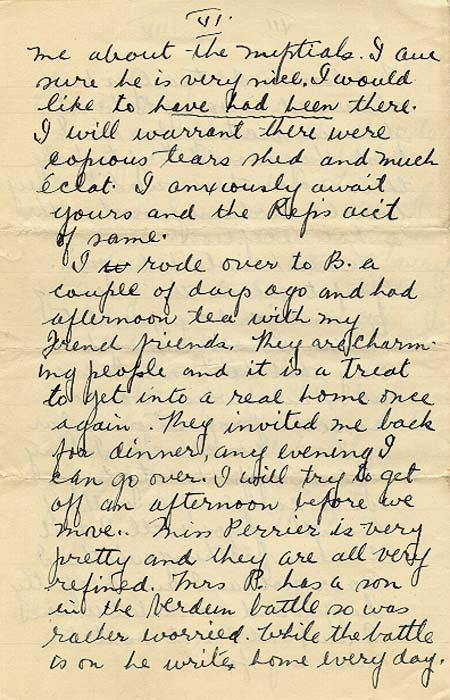 VI.
me about the nuptials. I am
sure he is very nice. I would
like to have had been there.
I will warrant there were
copious tears shed and much
éclat. I anxiously await
yours and the Rep's acc't
of same.
I rode over to B. a
couple of days ago and had
afternoon tea with my
French friends. They are charm-
ing people and it is a treat
to get into a real home once
again. They invited me back
for dinner, any evening I
can go over. I will try to get
off an afternoon before we
move. Miss Perrier is very
pretty and they are all very
refined. Mrs P. has a son
in the Verdun battle so was
rather worried. While the battle
is on he writes home every day.